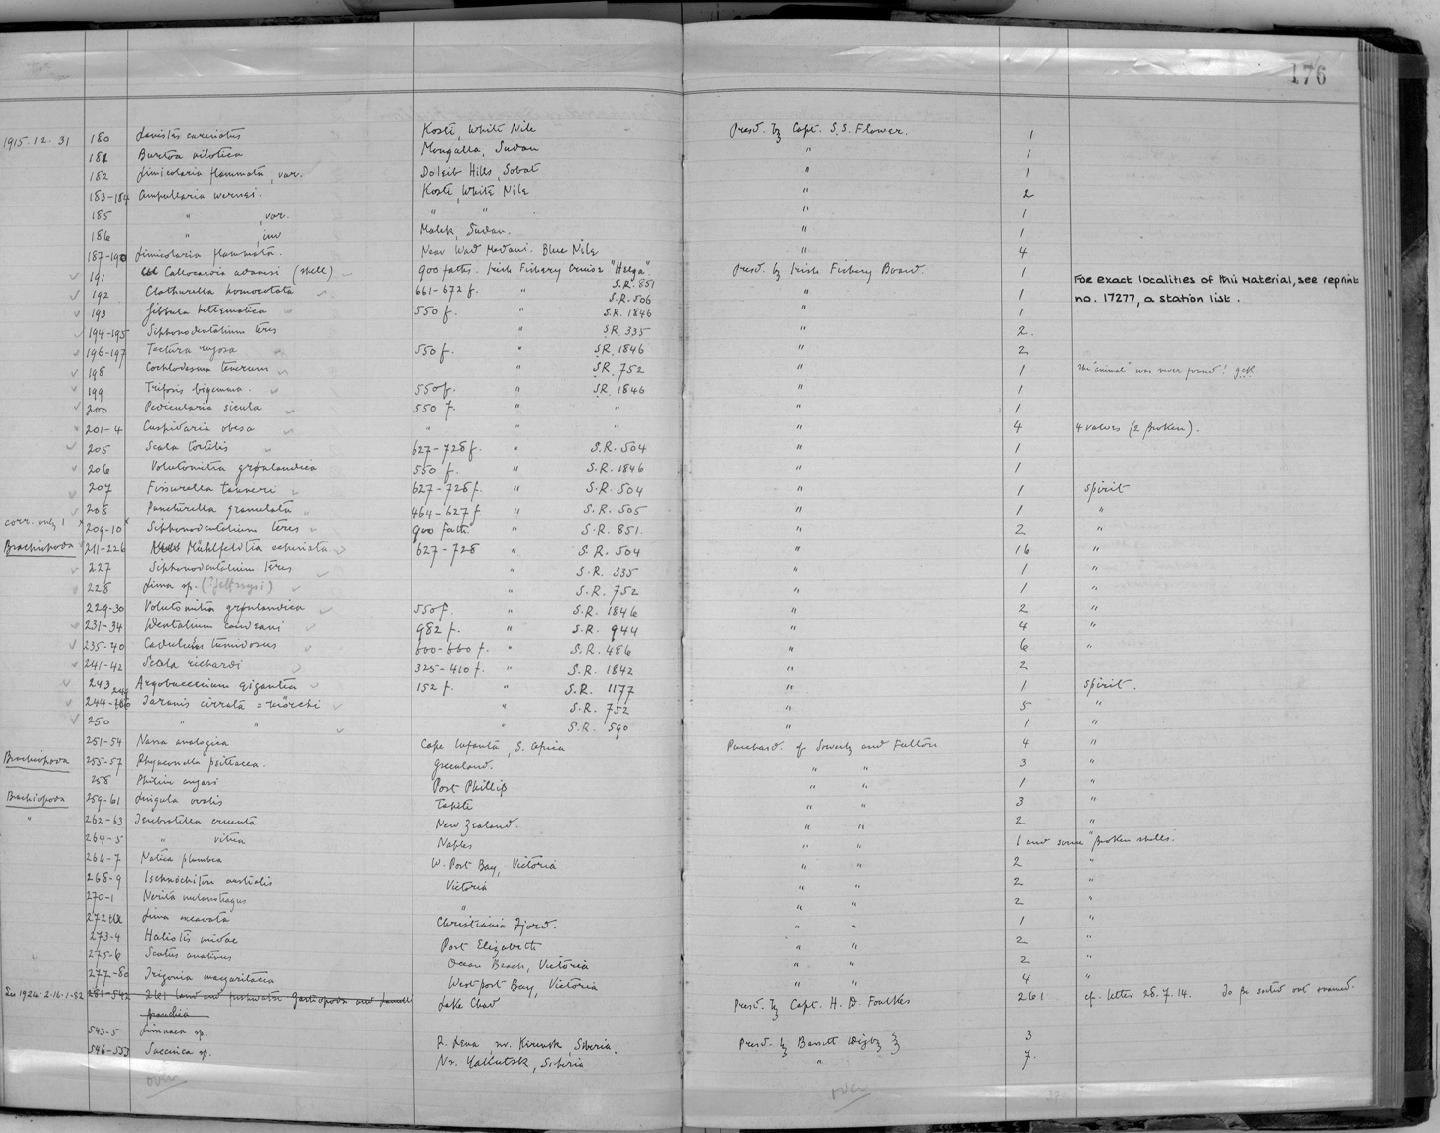 176
1915.12.31 180 Lanistes carinatus Kosti, White Nile Presd. by Capt. S.S. Flower. 1
181 Burtoa nilotica Mongalla, Sudan " 1
182 Limicolaria flammata, var. Doleib Hills, Sobat " 1
183-184 Ampullaria wernei. Kosti, White Nile " 2
185 " , var. " " " 1
186 " , juv Malek, Sudan. " 1
187-190 Limicolaria flammata. Near Wad Medani. Blue Nile " 4
191 Callocardia adamsi (shell) 900 faths. Irish Fishery Cruise "Helga". S.R. 851 Presd. by Irish Fishery Board. 1
For exact localities of this material, see reprint
192 Clathurella 661-672 f. " S.R. 506 " 1
no. 17277, a station list.
193 Gibbula 550 f. " S.R. 1846 " 1
194-195 Siphonodentalium teres " S.R. 335 " 2.
196-197 Tectura rugosa 550 f. " S.R. 1846 " 2
198 Cochlodesma tenerum " S.R. 752 " 1 The "animal" was never found!
199 Triforis bigemma. 550 f. " S.R. 1846 " 1
200 Pedicularia sicula 550 f. " " " 1
201-4 Cuspidaria obesa " " " " 4 4 valves (2 broken).
205 Scala tortilis 627-728 f. " S.R. 504 " 1
206 Volutomitra grønlandica 550 f. " S.R. 1846 " 1
207 Fissurella tanneri 627-728 f. " S.R. 504 " 1 spirit
208 Puncturella granulata 464-627 f " S.R. 505 " 1 "
corr. only 1 x 209-10 x Siphonodentalium teres 900 fath. " S.R. 851. " 2 "
Brachiopoda 211-226 Mühlfeldtia echinata 627-728 " S.R. 504 " 16 "
227 Siphonodentalium teres " S.R. 335 " 1 "
228 Lima sp. (?Jeffreysi) " S.R. 752 " 1 "
229-30 Volutomitra grønlandica 550 f. " S.R. 1846 " 2 "
231-34 Dentalium candeani 982 f. " S.R. 944 " 4 "
235-40 Cadulus tumidosus 600-660 f. " S.R. 486 " 6 "
241-42 Scala richardi 325-410 f. " S.R. 1842 " 2
243 Argobuccinum gigantea 152 f. " S.R. 1177 " 1 spirit.
244-249 Taranis cirrata = mörchi " S.R. 752 " 5 "
250 " " " S.R. 590 " 1 "
251-54 Nassa analogica Cape Infanta, S. Africa Purchasd. of Sowerby and Fulton 4 "
Brachiopoda 255-57 Rhynconella psittacea. Greenland. " " 3 "
258 Philine angasi Port Phillip " " 1 "
Brachiopoda 259-61 Lingula ovalis Tahiti " " 3 "
" 262-63 Terebratella cruenta New Zealand. " " 2 "
264-5 " vitrea Naples " " 1 and some broken shells.
266-7 Natica plumbea W. Port Bay, Victoria " " 2 "
268-9 Ischnochiton australis Victoria " " 2 "
270-1 Nerita melanotragus " " " 2 "
272 Lima excavata Christiania Fjord. " " 1 "
273-4 Haliotis midae Port Elizabeth " " 2 "
275-6 Scutus anatinus Ocean Beach, Victoria " " 2 "
277-80 Trigonia margaritacea Westport Bay, Victoria " " 4 "
See 1924.2.16.1-92 281-542 261 land and freshwater Gastropoda and Lamelli Lake Chad Presd. by Capt. H. D. Foulkes 261 cf. letter 28.7.14. To be sorted out & named.
branchia
543-5 Limnaea sp. R. Lena, nr. Kirensk, Siberia. Presd. by Bassett Digby } 3
546-553 Succinea sp. Nr. Yakutsk, Siberia " 7.
over over